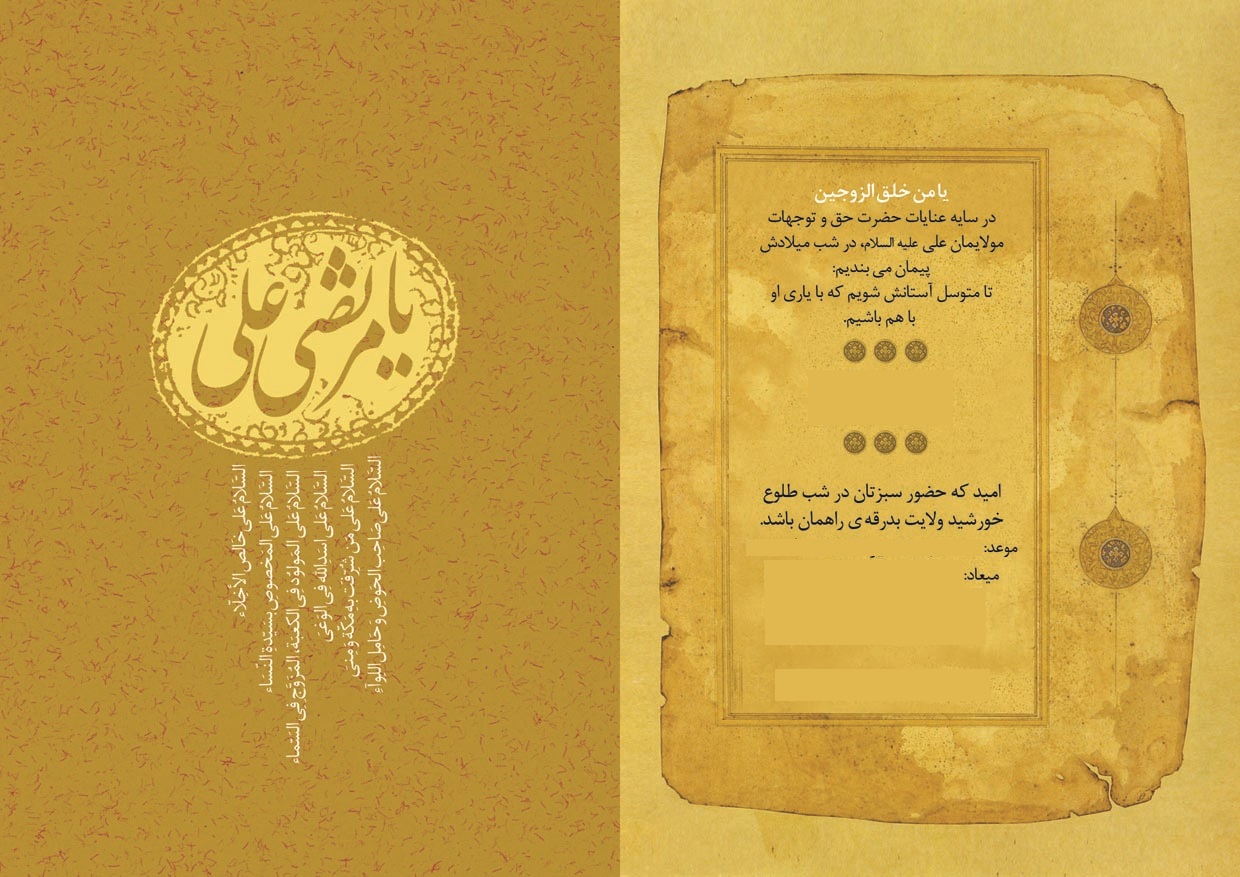 یا من خلق الزوجین
در سایه عنایات حضرت حق و توجهات
مولایمان علی علیه السلام، در شب میلادش
پیمان می بندیم:
تا متوسل آستانش شویم که با یاری او
با هم باشیم.
امید که حضور سبزتان در شب طلوع
خورشید ولایت بدرقه ی راهمان باشد.
موعد:
میعاد:
یا مرتضی علی
السَّلامُ عَلی صَاحِبِ الحَوضِ وَ حَامِلِ اللِّوآءِ
السَّلامُ عَلی مَن شُرِّفَت بِه مَکَّة وَ مِنی
السَّلامُ عَلی اسَدِالله فِی الوَغی
السَّلامُ عَلَی المَولودِ فِی الکَعبَة، المُزَوَّجِ فِی السَّماء
السَّلامُ عَلَی المَخصُوصِ بِسَیِّدَةِ النِّسَاء
السَّلامُ عَلی خَالِصِ الأخِلّاء